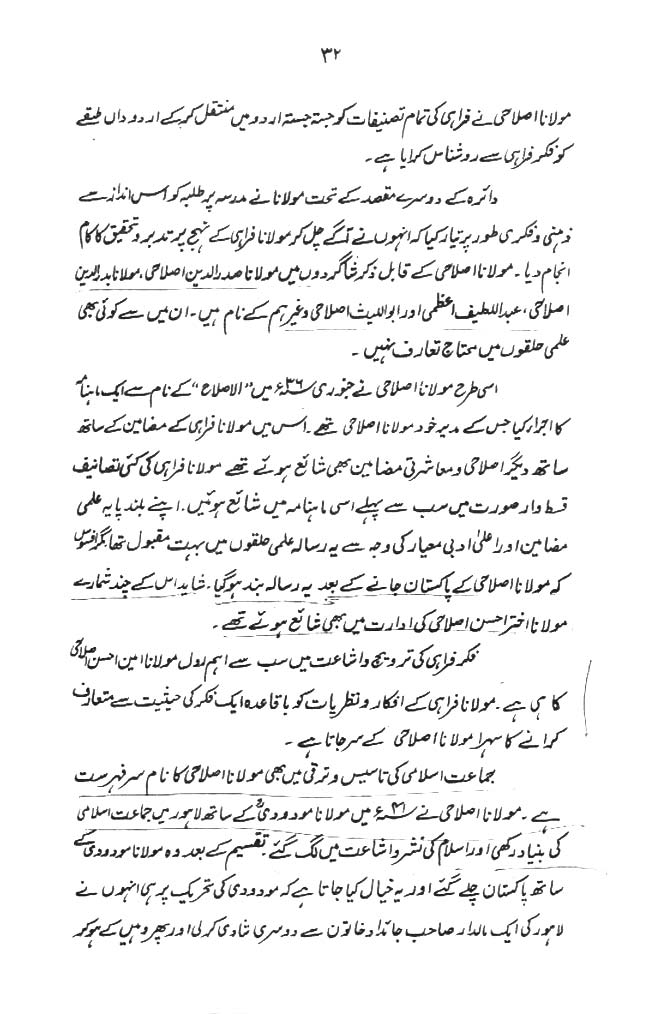 ۳۲
مولانا اصلاحی نے فراہی کی تمام تصنیفات کو جستہ جستہ اردو میں منتقل کر کے اردو داں طبقے
کو فکر فراہی سے روشناس کرایا ہے۔
دائرہ کے دوسرے مقصد کے تحت مولانا نے مدرسہ پر طلبہ کو اس انداز سے
ذہنی و فکری طور پر تیار کیا کہ انہوں نے آگے چل کر مولانا فراہی کے نہج پر تدبر و تحقیق کا کام
انجام دیا۔ مولانا اصلاحی کے قابل ذکر شاگردوں میں مولانا صدرالدین اصلاحی، مولانا بدرالدین
اصلاحی، عبداللطیف اعظمی اور ابواللیث اصلاحی وغیرہم کے نام ہیں۔ ان میں سے کوئی بھی
علمی حلقوں میں محتاج تعارف نہیں۔
اسی طرح مولانا اصلاحی نے جنوری ۳۶ء میں "الاصلاح" کے نام سے ایک ماہنامہ
کا اجراء کیا جس کے مدیر خود مولانا اصلاحی تھے۔ اس میں مولانا فراہی کے مضامین کے ساتھ
ساتھ دیگر اصلاحی و معاشرتی مضامین بھی شائع ہوئے تھے مولانا فراہی کی کئی تصانیف
قسط وار صورت میں سب سے پہلے اسی ماہنامہ میں شائع ہوئیں۔ اپنے بلند پایہ علمی
مضامین اور اعلیٰ ادبی معیار کی وجہ سے یہ رسالہ علمی حلقوں میں بہت مقبول تھا مگر افسوس
کہ مولانا اصلاحی کے پاکستان جانے کے بعد یہ رسالہ بند ہوگیا۔ شاید اس کے چند شمارے
مولانا اختر احسن اصلاحی کی ادارت میں بھی شائع ہوئے تھے۔
فکر فراہی کی ترویج و اشاعت میں سب سے اہم رول مولانا امین احسن اصلاحی
کا ہی ہے۔ مولانا فراہی کے افکار و نظریات کو باقاعدہ ایک فکر کی حیثیت سے متعارف
کرانے کا سہرا مولانا اصلاحی کے سر جاتا ہے۔
جماعت اسلامی کی تاسیس و ترقی میں بھی مولانا اصلاحی کا نام سر فہرست
ہے۔ مولانا اصلاحی نے ۴۱ء میں مولانا مودودیؒ کے ساتھ لاہور میں جماعت اسلامی
کی بنیاد رکھی اور اسلام کی نشر و اشاعت میں لگ گئے۔ تقسیم کے بعد وہ مولانا مودودی کے
ساتھ پاکستان چلے گئے اور یہ خیال کیا جاتا ہے کہ مودودی کی تحریک پر ہی انہوں نے
لاہور کی ایک مالدار صاحب جائداد خاتون سے دوسری شادی کرلی اور پھر وہیں کے ہوکر